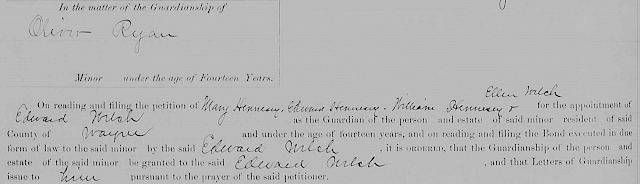 In the matter of the Guardianship of
Oliver Ryan
Minor under the age of Fourteen Years.
Ellen Welch
On reading and filing the petition of Mary Hennesey, Edward Hennesey, William Hennesey & for the appointment of
Edward Welch as the Guardian of the person and estate of said minor resident of said
County of Wayne and under the age of fourteen years, and on reading and filing the Bond executed in due
form of law to the said minor by the said Edward Welch, it is ORDERED, that the Guardianship of the person and
estate of the said minor be granted to the said Edward Welch, and that Letters of Guardianship
issue to him pursuant to the prayer of the said petitioner.